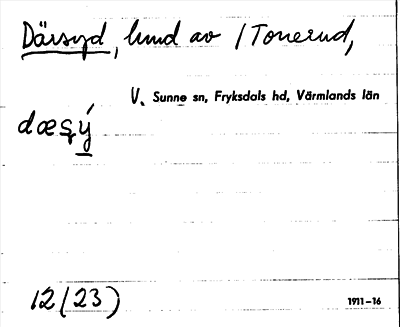 Därsyd, lund av /Tonerud,
V. Sunne sn, Fryksdals hd, Värmlands län
dæşý
12 (23)
1911–16